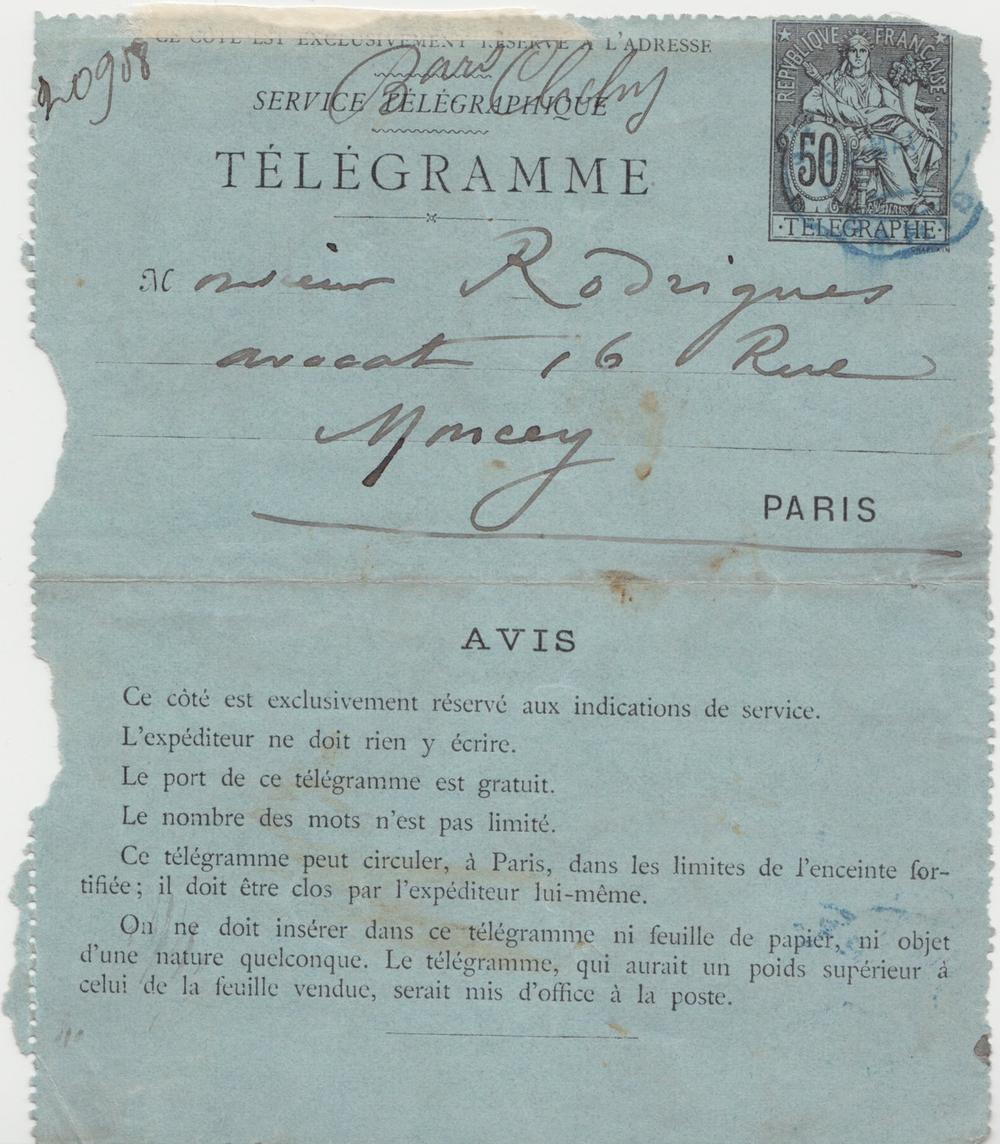 CE COTÉ EST EXCLUSIVEMENT RÉSERVÉ A L'ADRESSE
20908
SERVICE TÉLÉGRAPHIQUE
TÉLÉGRAMME
RÉPUBLIQUE FRANÇAISE
50
TELEGRAPHE
Monsieur Rodrigues
avocat 16 Rue
Moncey
PARIS
AVIS
Ce côté est exclusivement réservé aux indications de service.
L'expéditeur ne doit rien y écrire.
Le port de ce télégramme est gratuit.
Le nombre des mots n'est pas limité.
Ce télégramme peut circuler, à Paris, dans les limites de l'enceinte for-
tifiée; il doit être clos par l'expéditeur lui-même.
On ne doit insérer dans ce télégramme ni feuille de papier, ni objet
d'une nature quelconque. Le télégramme, qui aurait un poids supérieur à
celui de la feuille vendue, serait mis d'office à la poste.